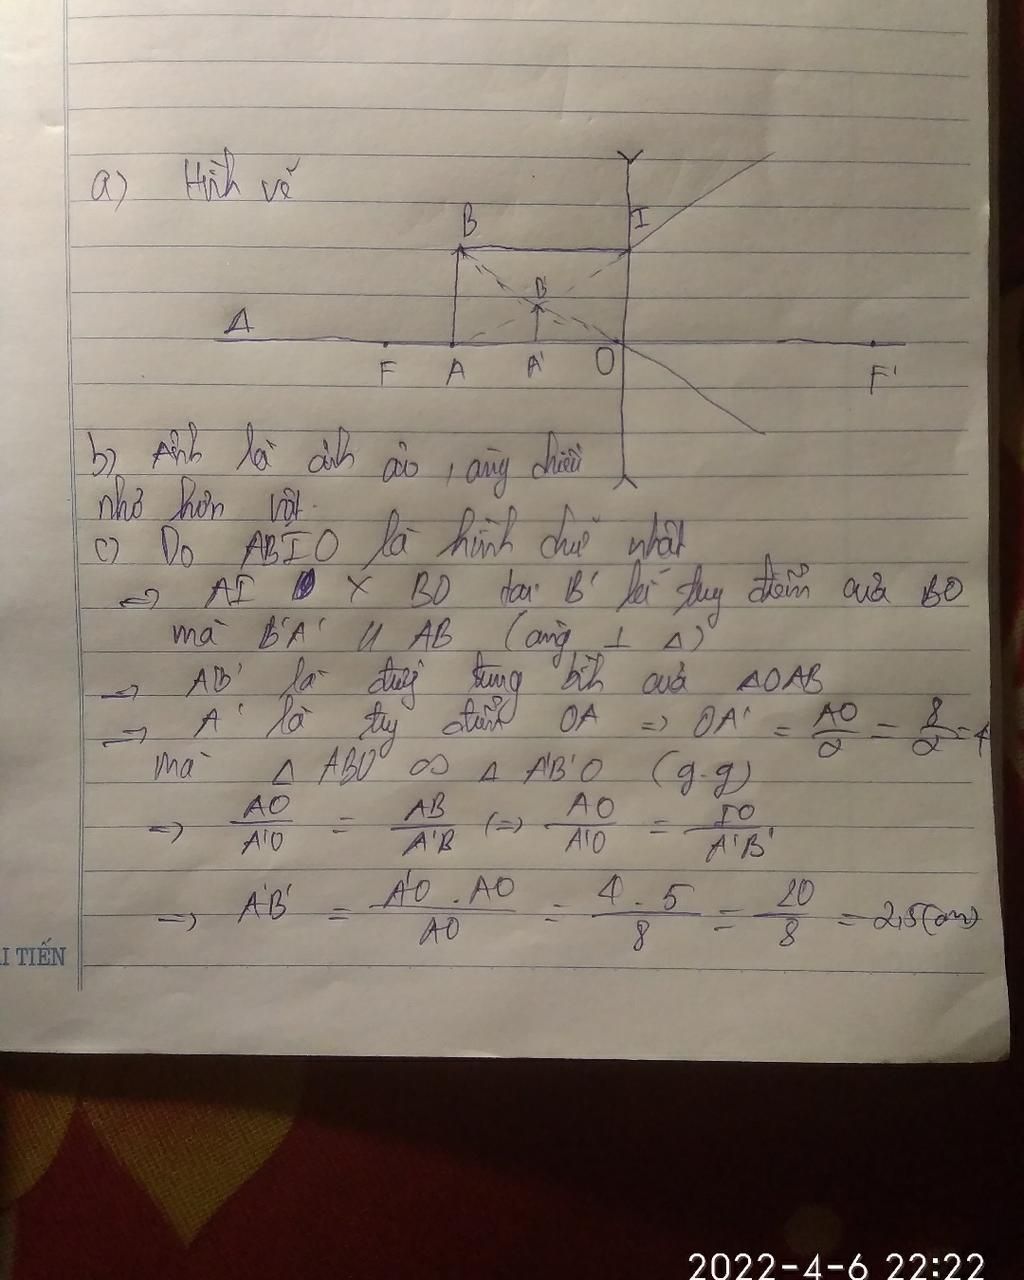 a) Hình vẽ
B
I
B'
Δ
F A A' O F'
b) Ảnh là ảnh ảo, cùng chiều
nhỏ hơn vật.
c) Do ABIO là hình chữ nhật
=> AI X BO tại B' là trung điểm của BO
mà B'A' // AB (cùng ⊥ Δ)
=> AB' là đường trung bình của ΔOAB
=> A' là trung điểm OA => OA' = AO/2 = 8/2 = 4
mà Δ ABO ∽ Δ A'B'O (g.g)
=> AO/A'O = AB/A'B (=> AO/A'O = IO/A'B'
=> A'B' = A'O . AO/AO = 4 . 5/8 = 20/8 = 2,5(cm)
ẢI TIẾN
2022-4-6 22:22